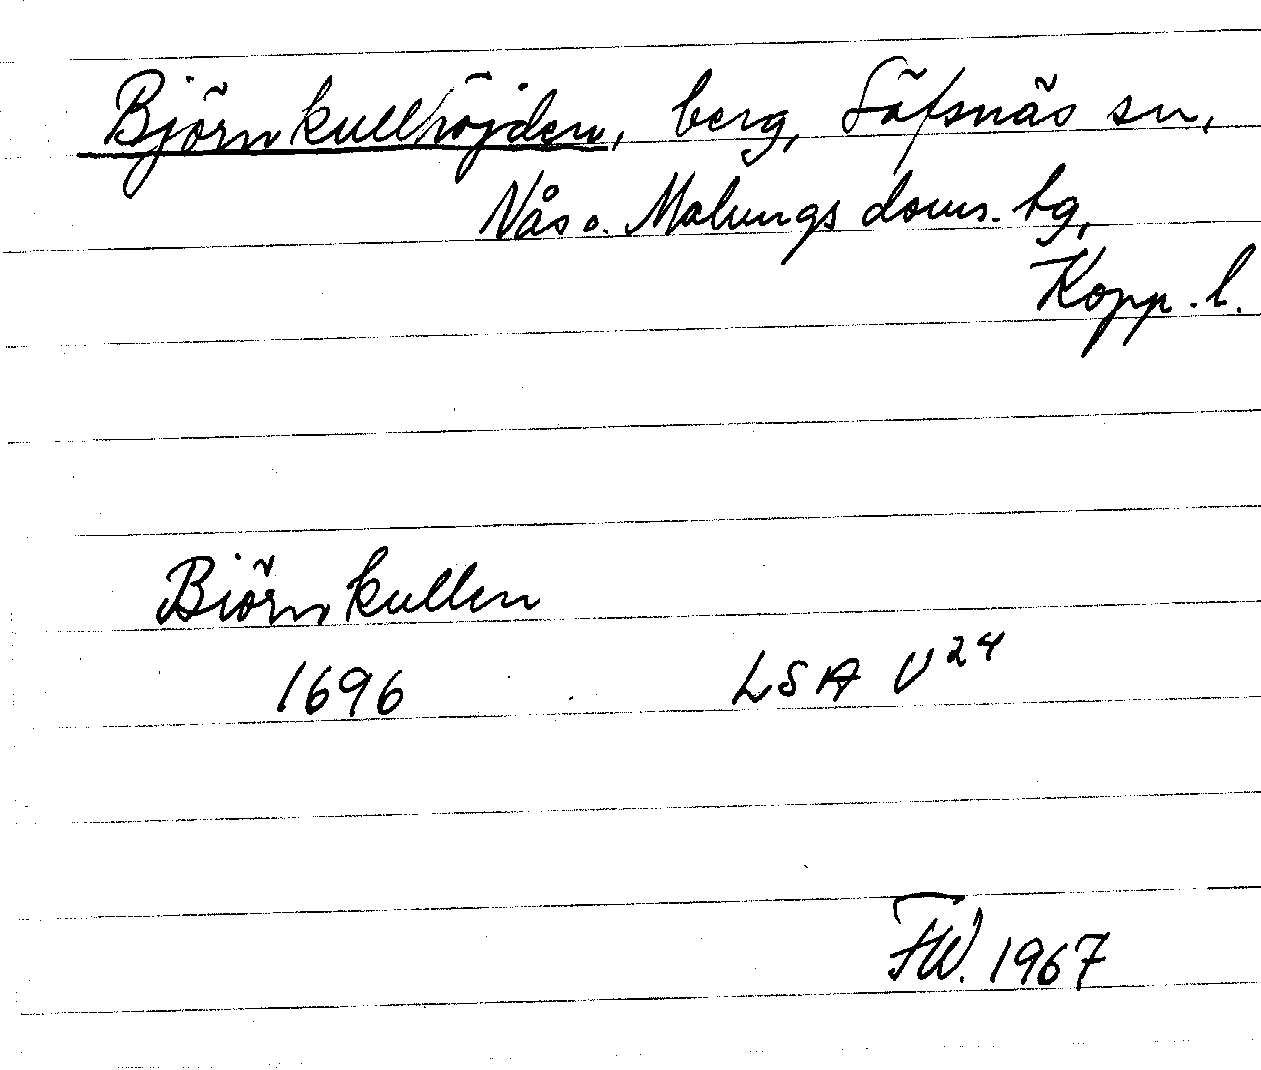 Björnkullhöjden, berg, Säfsnäs sn,
Nås o. Malungs doms. tg,
Kopp. l.
Biörnkullen
1696 LSA U24
FW. 1967